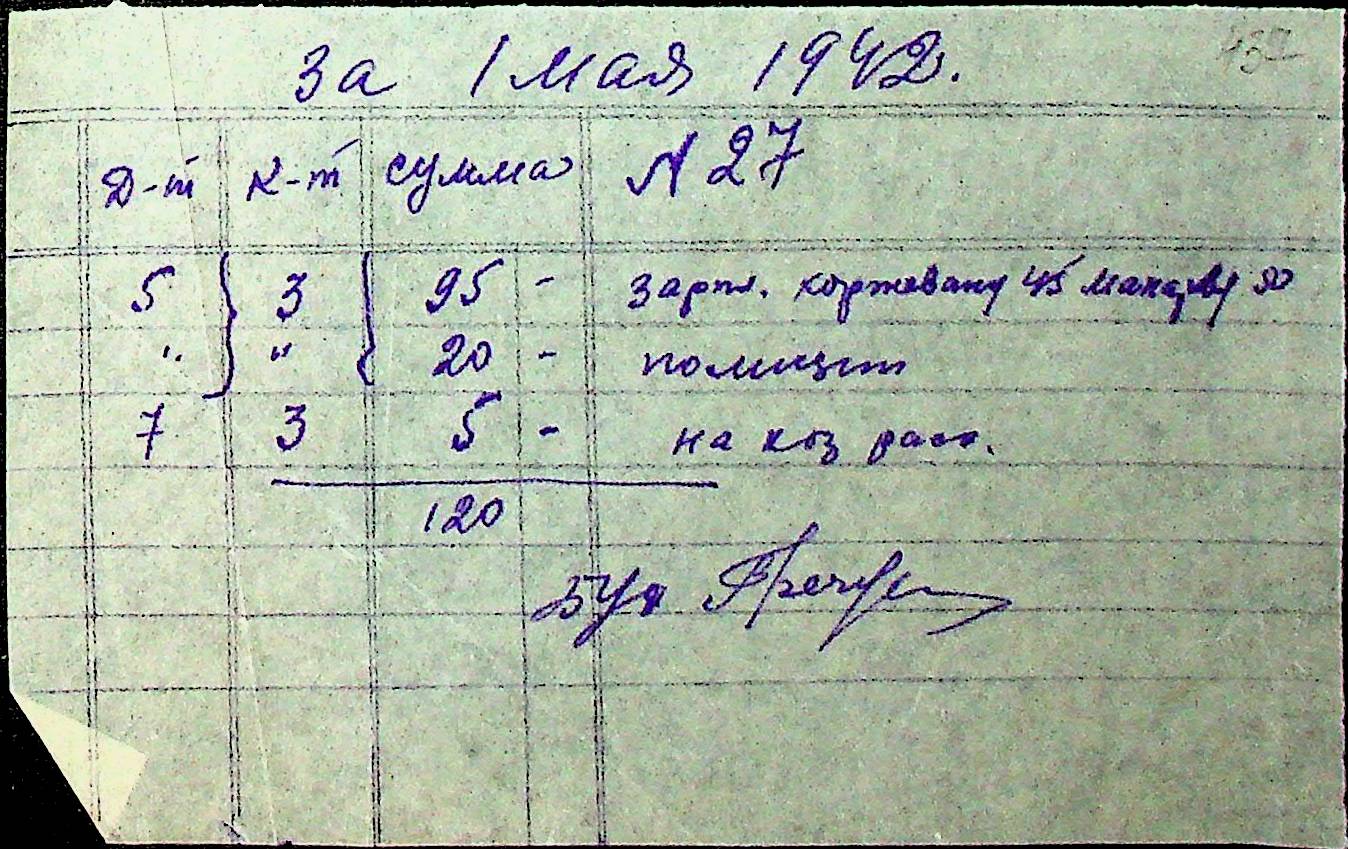 За 1 мая 1942.
Д-т К-т сумма N 27
5 3 95 - зарпл. Коржевану 45 50
" " 20 - полицип
7 3 5 - на хоз расх.
120
Бух